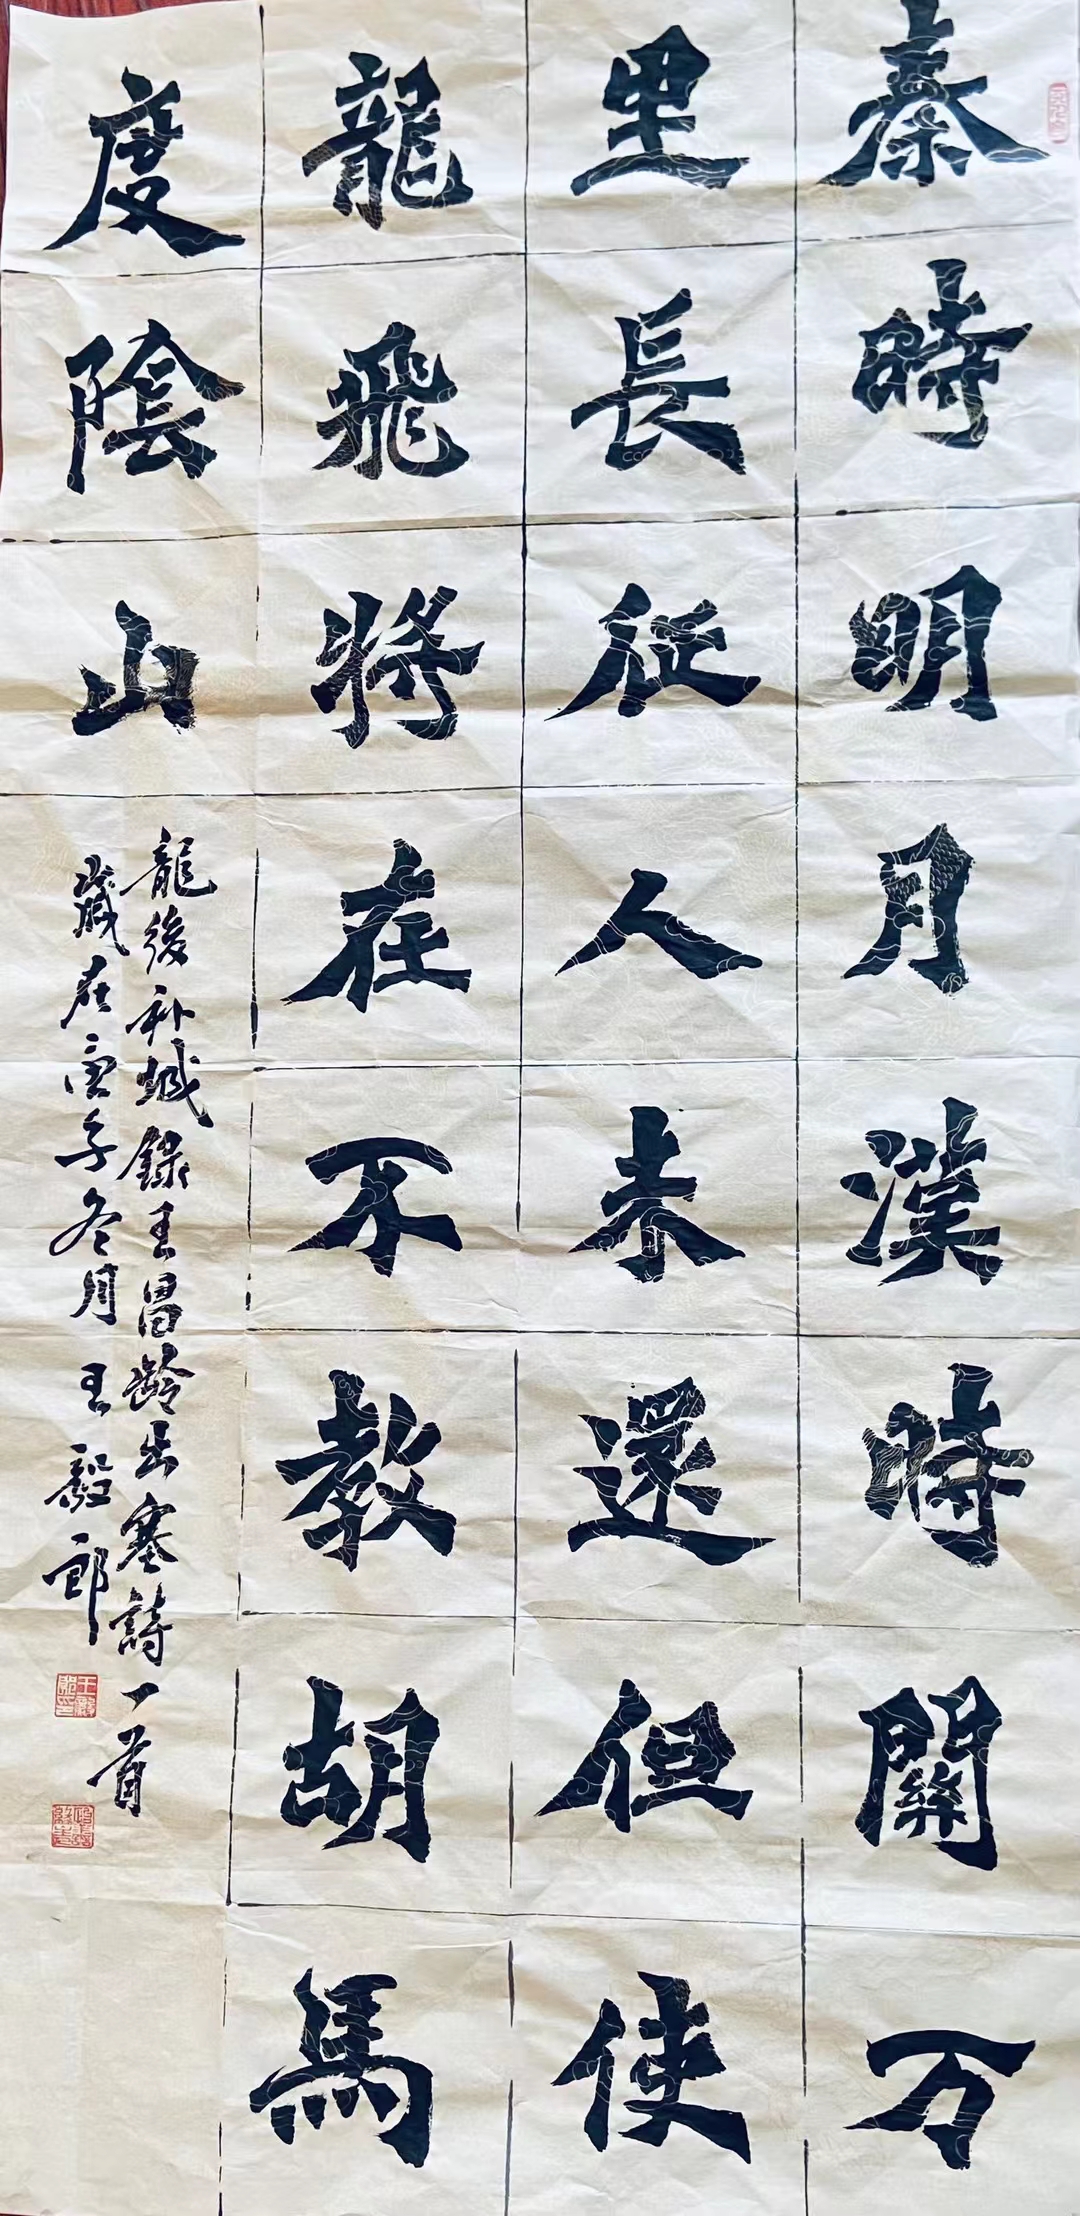 秦時明月漢時關万
里長征人未還但使
龍飛將在不教胡馬
度陰山
龍後补城錄王昌齡出塞詩一首
歲在庚子冬月王毅郎